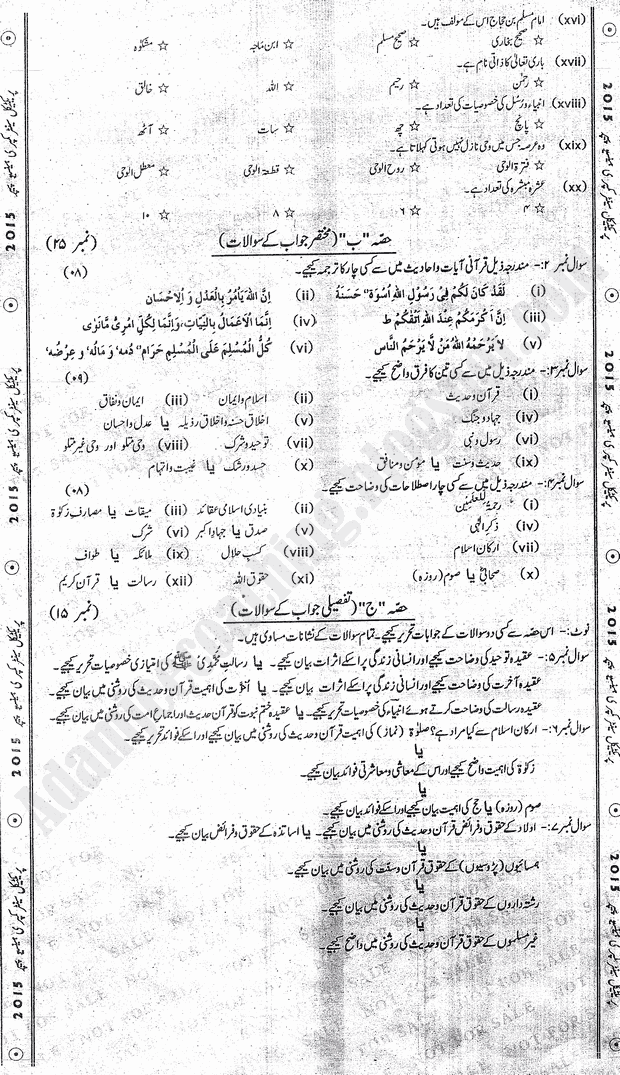 (xvi) امام مسلم بن حجاج اس کے مولف ہیں۔
☆ صحیح بخاری ☆ صحیح مسلم ☆ ابن ماجہ ☆ مشکوٰۃ
(xvii) باری تعالیٰ کا ذاتی نام ہے۔
☆ رحمٰن ☆ رحیم ☆ اللہ ☆ خالق
(xviii) انبیاء و رسل کی خصوصیات کی تعداد ہے۔
☆ پانچ ☆ چھ ☆ سات ☆ آٹھ
(xix) وہ عرصہ جس میں وحی نازل نہیں ہوتی کہلاتا ہے۔
☆ فترۃ الوحی ☆ روح الوحی ☆ قطعۃ الوحی ☆ معطل الوحی
(xx) عشرہ مبشرہ کی تعداد ہے۔
☆ ۴ ☆ ۶ ☆ ۸ ☆ ۱۰
حصّہ "ب" (مختصر جواب کے سوالات) (نمبر ۲۵)
سوال نمبر ۲:- مندرجہ ذیل قرآنی آیات و احادیث میں سے کسی چار کا ترجمہ کیجیے۔ (۰۸)
(i) لَقَدْ كَانَ لَكُمْ فِي رَسُوْلِ اللهِ اُسْوَة" حَسَنَة (ii) اِنَّ اللهَ يَأْمُرُ بِالْعَدْلِ وَ الْاِحْسَان
(iii) اِنَّ اَكْرَمَكُمْ عِنْدَ اللهِ اَتْقٰكُمْ ط (iv) اِنَّمَا الْاَعْمَالُ بِالنِّيَاتِ، وَاِنَّمَا لِكُلِّ امْرِئٍ مَّانَوٰى
(v) لَا يَرْحَمُهُ اللهُ مَنْ لَّا يَرْحَمُ النَّاس (vi) كُلُّ الْمُسْلِمَ عَلَى الْمُسْلِمِ حَرَام" دَمُه' وَ مَالُه' وَ عِرْضُه'
سوال نمبر ۳:- مندرجہ ذیل میں سے کسی تین کا فرق واضح کیجیے۔ (۰۹)
(i) قرآن و حدیث (ii) اسلام و ایمان (iii) ایمان و نفاق
(iv) جہاد و جنگ (v) اخلاق حسنہ و اخلاق رذیلہ یا عدل و احسان
(vi) رسول و نبی (vii) توحید و شرک (viii) وحی متلو اور وحی غیر متلو
(ix) حدیث و سنت یا مؤمن و منافق (x) حسد و رشک یا غیبت و اتہام
سوال نمبر ۴:- مندرجہ ذیل میں سے کسی چار اصطلاحات کی وضاحت کیجیے۔ (۰۸)
(i) رحمۃ للعٰلمین (ii) بنیادی اسلامی عقائد (iii) میقات یا مصارف زکوٰۃ
(iv) ذکر الٰہی (v) صدق یا جہاد اکبر (vi) شرک
(vii) ارکان اسلام (viii) کسب حلال (ix) ملائکہ یا طواف
(x) صحابیؓ یا صوم (روزہ) (xi) حقوق اللہ (xii) رسالت یا قرآن کریم
حصّہ "ج" (تفصیلی جواب کے سوالات) (نمبر ۱۵)
نوٹ:- اس حصہ سے کسی دو سوالات کے جوابات تحریر کیجیے۔ تمام سوالات کے نشانات مساوی ہیں۔
سوال نمبر ۵:- عقیدہ توحید کی وضاحت کیجیے اور انسانی زندگی پر اسکے اثرات بیان کیجیے۔ یا رسالتِ محمدیؐ ﷺ کی امتیازی خصوصیات تحریر کیجیے۔
عقیدہ آخرت کی وضاحت کیجیے اور انسانی زندگی پر اسکے اثرات بیان کیجیے۔ یا اخوّت کی اہمیت قرآن و حدیث کی روشنی میں بیان کیجیے۔
عقیدہ رسالت کی وضاحت کرتے ہوئے انبیاء کی خصوصیات تحریر کیجیے۔ یا عقیدہ ختم نبوت کو قرآن حدیث اور اجماع امت کی روشنی میں بیان کیجیے۔
سوال نمبر ۶:- ارکان اسلام سے کیا مراد ہے؟ صلوٰۃ (نماز) کی اہمیت قرآن و حدیث کی روشنی میں بیان کیجیے اور اسکے فوائد تحریر کیجیے۔
یا
زکوٰۃ کی اہمیت واضح کیجیے اور اس کے معاشی و معاشرتی فوائد بیان کیجیے۔
یا
صوم (روزہ) یا حج کی اہمیت بیان کیجیے اور اسکے فوائد بیان کیجیے۔
سوال نمبر ۷:- اولاد کے حقوق و فرائض قرآن و حدیث کی روشنی میں بیان کیجیے۔ یا اساتذہ کے حقوق و فرائض بیان کیجیے۔
یا
ہمسائیوں (پڑوسیوں) کے حقوق قرآن و سنت کی روشنی میں بیان کیجیے۔
یا
رشتہ داروں کے حقوق قرآن و حدیث کی روشنی میں بیان کیجیے۔
یا
غیر مسلموں کے حقوق قرآن و حدیث کی روشنی میں واضح کیجیے۔
2015
2015
2015
2015
2015
2015
2015
2015
NOT FOR SALE